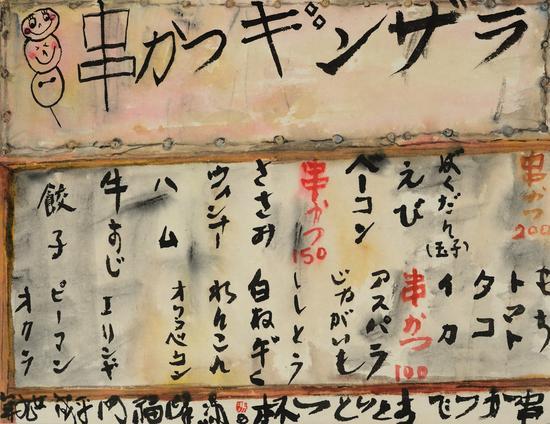 串かつギンザラ
串かつ
200
ばくだん
(玉子)
えび
ベーコン
串かつ
150
ささみ
ウィンナー
ハム
牛すじ
餃子
もち
トマト
タコ
イカ
串かつ
100
アスパラ
じゃがいも
ししとう
白ねぎ
れんこん
オクラベーコン
エリンギ
ピーマン
オクラ
串かつで
一杯